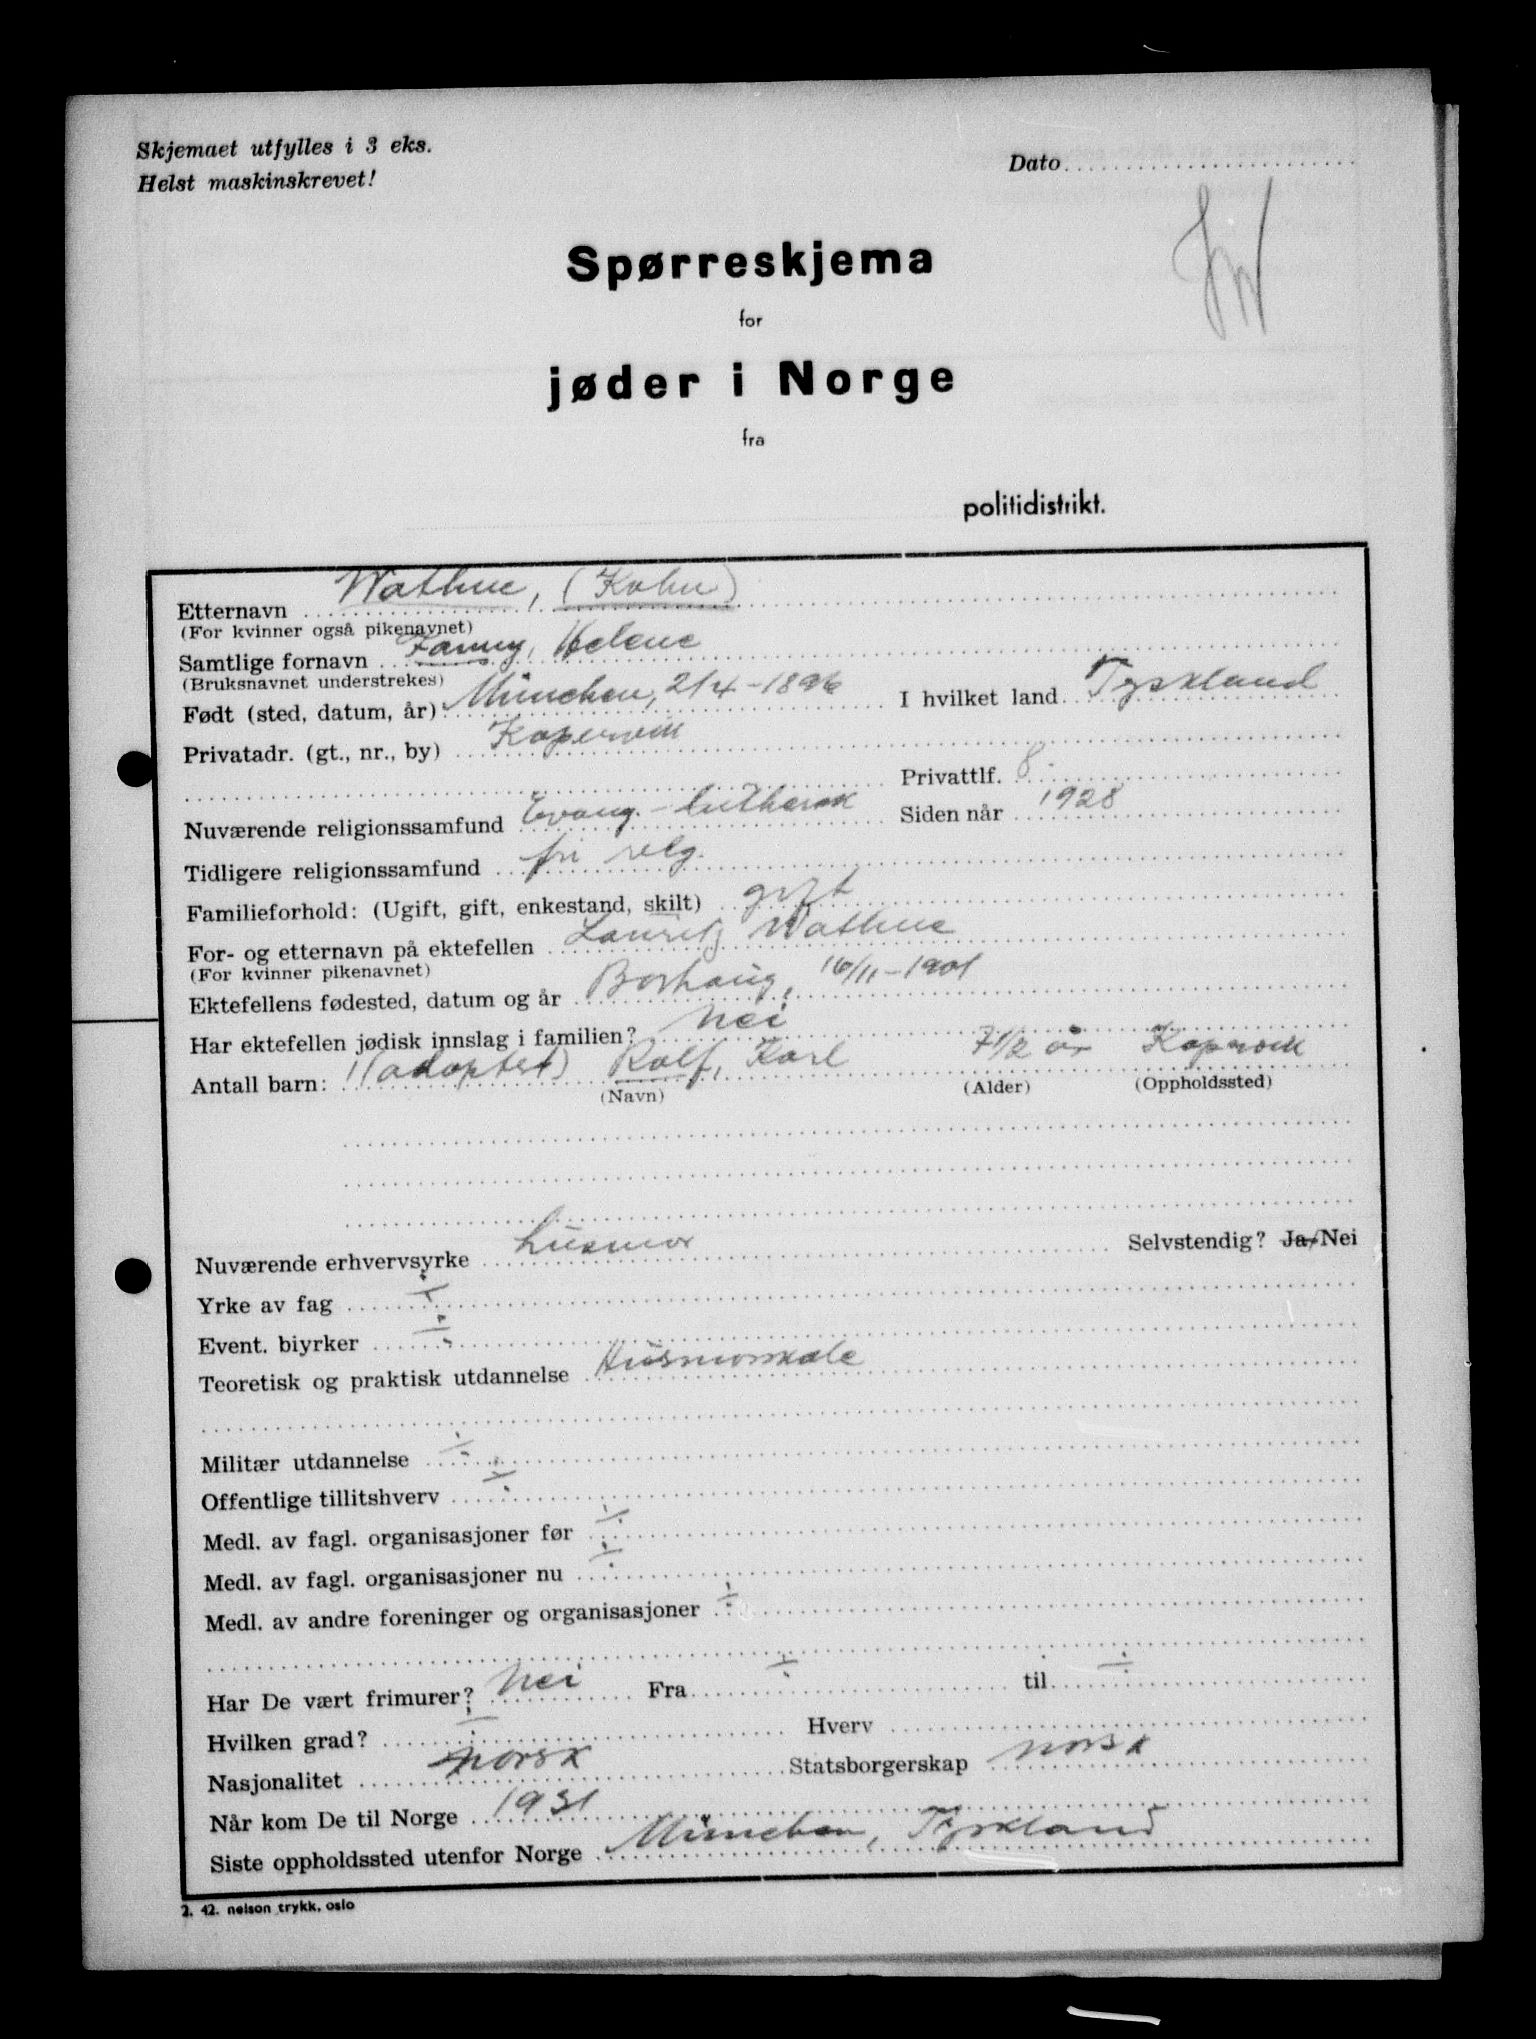 Skjemaet utfylles i 3 eks.
Helst maskinskrevet!
Dato
Spørreskjema
for
jøder i Norge
fra
politidistrikt.
Etternavn Wathne, (Kohn)
(For kvinner også pikenavnet)
Samtlige fornavn Fanny, Helene
(Bruksnavnet understrekes)
Født (sted, datum, år) München, 2/4-1896 I hvilket land Tyskland
Privatadr. (gt., nr., by) Kopervik
Privattlf. 8.
Nuværende religionssamfund Evang.-luthersk Siden når 1928
Tidligere religionssamfund fri relg.
Familieforhold: (Ugift, gift, enkestand, skilt) gift
For- og etternavn på ektefellen Lauritz Wathne
(For kvinner pikenavnet)
Ektefellens fødested, datum og år Borhaug, 16/11-1901
Har ektefellen jødisk innslag i familien? Nei
Antall barn: 1 (adoptert) Rolf, Karl 7 1/2 år Kopervik
(Navn) (Alder) (Oppholdssted)
Nuværende erhvervsyrke husmor Selvstendig? Ja/Nei
Yrke av fag ÷
Event. biyrker ÷
Teoretisk og praktisk utdannelse Husmorskole
Militær utdannelse ÷
Offentlige tillitshverv ÷
Medl. av fagl. organisasjoner før ÷
Medl. av fagl. organisasjoner nu ÷
Medl. av andre foreninger og organisasjoner ÷
Har De vært frimurer? Nei Fra ÷ til ÷
Hvilken grad? ÷ Hverv
Nasjonalitet norsk Statsborgerskap norsk
Når kom De til Norge 1931
Siste oppholdssted utenfor Norge München, Tyskland
2. 42. nelson trykk, oslo